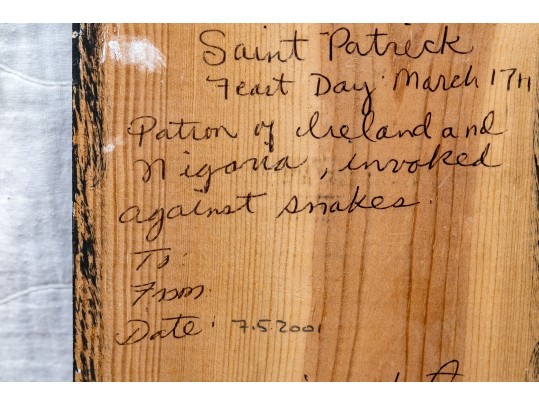 Saint Patreck
Feast Day March 17th
Patron of Ireland and
Nigaria, invoked
against snakes.
To:
From
Date: 7.5.2001